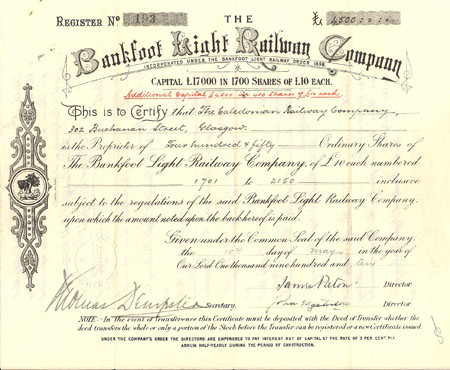 REGISTER Nº 193 THE £ 4500 : : 
Bankfoot Light Railway Company
INCORPORATED UNDER THE BANKFOOT LIGHT RAILWAY ORDER 1898.
CAPITAL £17000 IN 1700 SHARES OF £10 EACH.
Additional Capital in 450 shares of £10 each
This is to Certify that The Caledonian Railway Company,
302 Buchanan Street, Glasgow.
is the Proprietor of Four hundred & fifty Ordinary Shares of
The Bankfoot Light Railway Company, of £10 each numbered
1701 to 2150 inclusive
subject to the regulations of the said Bankfoot Light Railway Company,
upon which the amount noted upon the back hereof is paid.
Given under the Common Seal of the said Company
the day of May in the year of
Our Lord One thousand nine hundred and ten
Director.
Thomas Dempster Secretary. Director
NOTE.—In the event of transference this Certificate must be deposited with the Deed of Transfer whether the
deed transfers the whole or only a portion of the Stock before the Transfer can be registered or a new Certificate issued.
UNDER THE COMPANY'S ORDER THE DIRECTORS ARE EMPOWERED TO PAY INTEREST OUT OF CAPITAL AT THE RATE OF 3 PER CENT. PER
ANNUM HALF-YEARLY DURING THE PERIOD OF CONSTRUCTION.